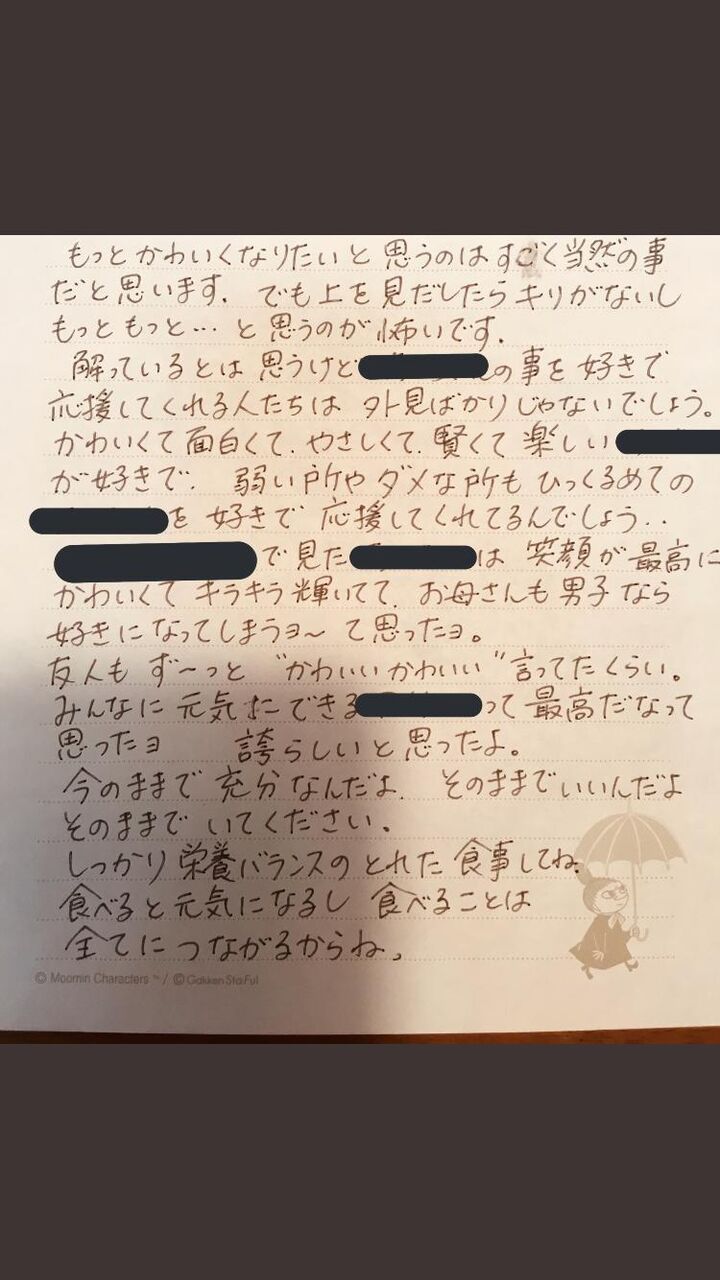 もっとかわいくなりたいと思うのはすごく当然の事
だと思います. でも上を見だしたらキリがないし
もっともっと… と思うのが怖いです.
解っているとは思うけど の事を好きで
応援してくれる人たちは 外見ばかりじゃないでしょう。
かわいくて面白くて. やさしくて. 賢くて 楽しい
が好きで. 弱い所やダメな所も ひっくるめての
を好きで 応援してくれてるんでしょう..
で見た は 笑顔が最高に
かわいくて キラキラ輝いてて. お母さんも男子なら
好きになってしまうョ〜 て思ったョ。
友人も ず〜っと "かわいいかわいい"言ってたくらい。
みんなに元気にできる って最高だなって
思ったョ 誇らしいと思ったよ。
今のままで充分なんだよ. そのままでいいんだよ
そのままで いてください.
しっかり栄養バランスの とれた食事してね.
食べると元気になるし 食べることは
全てにつながるからね.
© Moomin Characters ™ / © Gakken Sta:Ful